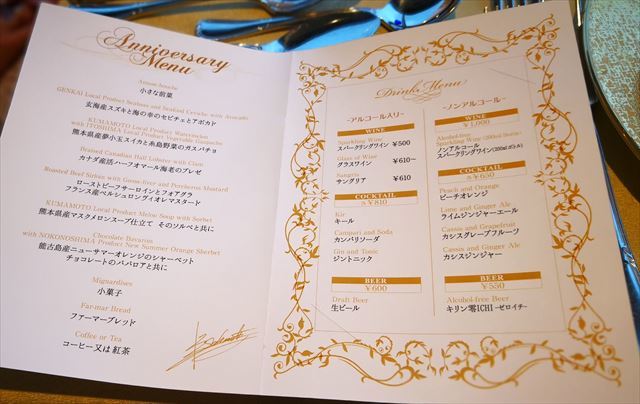 Anniversary
Menu
Amuse bouche
小さな前菜
GENKAI Local Product Seabass and Seafood Ceviche with Avocado
玄海産スズキと海の幸のセビチェとアボカド
KUMAMOTO Local Product Watermelon
with ITOSHIMA Local Product Vegetable Gazpacho
熊本県産夢小玉スイカと糸島野菜のガスパチョ
Braised Canadian Half Lobster with Clam
カナダ産活ハーフオマール海老のブレゼ
Roasted Beef Sirloin with Goose-liver and Percherons Mustard
ローストビーフサーロインとフォアグラ
フランス産ペルシュロンヴィオレマスタード
KUMAMOTO Local Product Melon Soup with Sorbet
熊本県産マスクメロンスープ仕立て そのソルベと共に
Chocolate Bavarois
with NOKONOSHIMA Product New Summer Orange Sherbet
能古島産ニューサマーオレンジのシャーベット
チョコレートのババロアと共に
Mignardises
小菓子
Far-mar Bread
ファーマーブレッド
Coffee or Tea
コーヒー又は紅茶
Drinks Menu
-アルコール入リ-
WINE
Sparkling Wine
スパークリングワイン ¥500
Glass of Wine
グラスワイン ¥610~
Sangria
サングリア ¥610
COCKTAIL
各¥810
Kir
キール
Campari and Soda
カンパリソーダ
Gin and Tonic
ジントニック
BEER
¥600
Draft Beer
生ビール
-ノンアルコール-
WINE
¥1,000
Alcohol-free
Sparkling Wine (200ml Bottle)
ノンアルコール
スパークリングワイン(200mlボトル)
COCKTAIL
各¥650
Peach and Orange
ピーチオレンジ
Lime and Ginger Ale
ライムジンジャーエール
Cassis and Grapefruit
カシスグレープフルーツ
Cassis and Ginger Ale
カシスジンジャー
BEER
¥550
Alcohol-free Beer
キリン零ICHI -ゼロイチ-